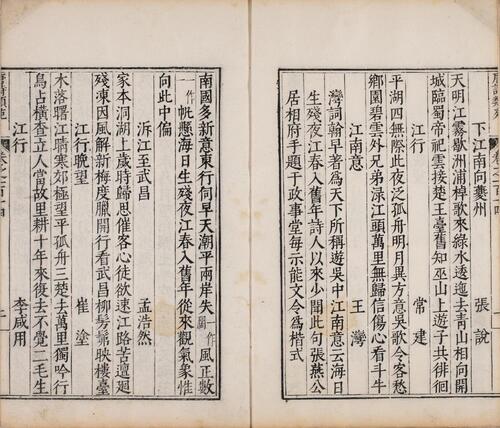 下江南向夔州 張說
天明江霧歇洲浦棹歌來綠水逶迤去青山相向開
城臨蜀帝祀雲接楚王臺舊知巫山上遊子共徘徊
江行 常建
平湖四無際此夜泛孤舟明月異方意吳歌令客愁
鄉園碧雲外兄弟淥江頭萬里無歸信傷心看斗牛
江南意 王灣
灣詞翰早著為天下所稱遊吳中江南意云海日
生殘夜江春入舊年詩人以來少聞此句張燕公
居相府手題于政事堂每示能文令為楷式
南國多新意東行伺早天潮平兩岸失一作闊風正數
一作一帆懸海日生殘夜江春入舊年從來觀氣象惟
向此中偏
泝江至武昌 孟浩然
家本洞湖上歲時歸思催客心徒欲速江路苦邅迴
殘凍因風解新梅度臘開行看武昌柳髣髴映樓臺
江行晚望 崔塗
木落曙江晴寒郊極望平孤舟三楚去萬里獨吟行
鳥占橫查立人當故里耕十年來復去不覺二毛生
江行 李咸用